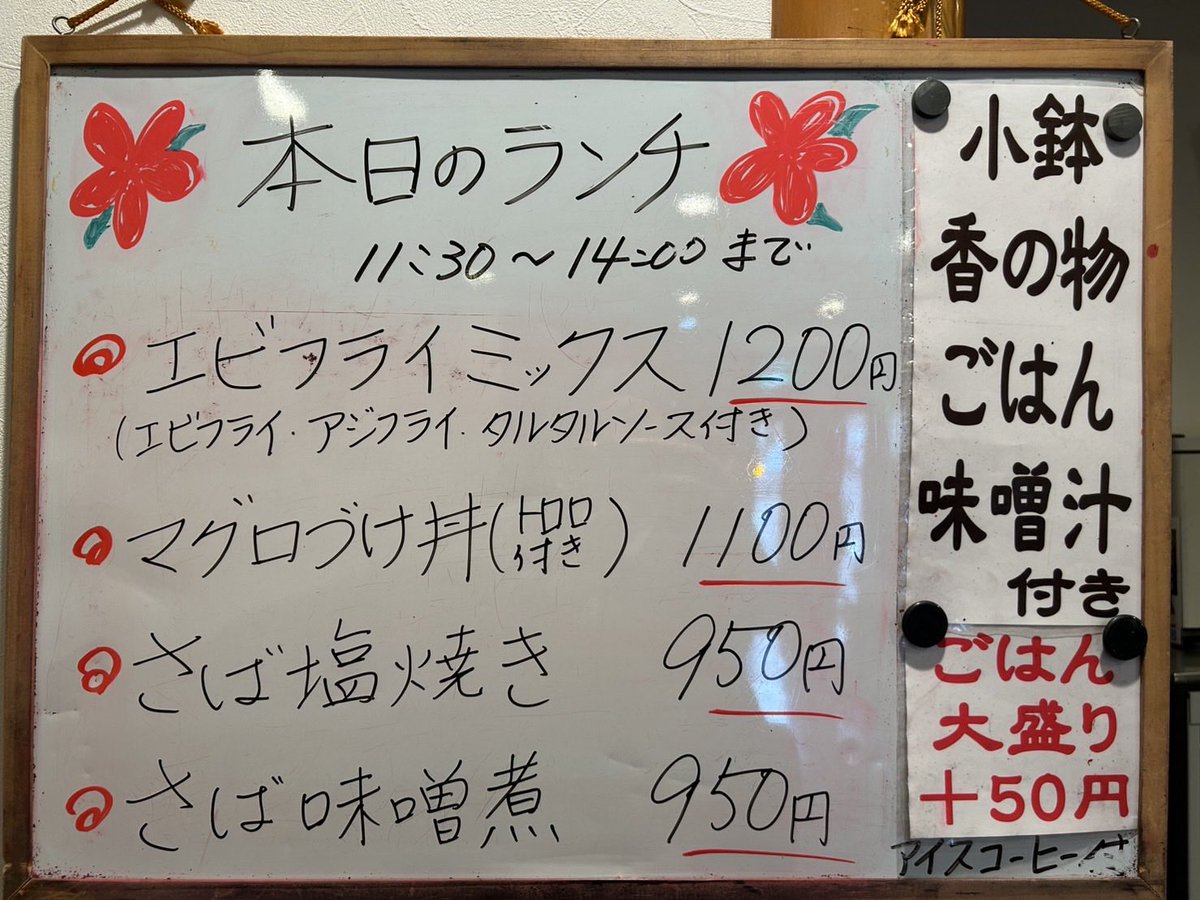 本日のランチ
11:30～14:00 まで
エビフライミックス 1200円
(エビフライ・アジフライ・タルタルソース付き)
マグロづけ丼(トロロ付き) 1100円
さば塩焼き 950円
さば味噌煮 950円
小鉢
香の物
ごはん
味噌汁
付き
ごはん
大盛り
＋50円
アイスコーヒー付